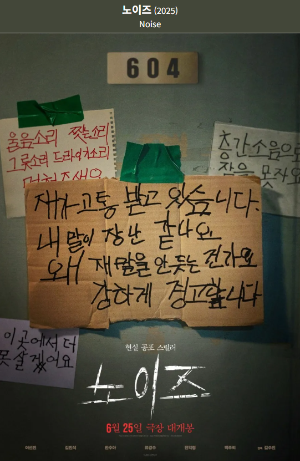 노이즈 (2025)
Noise
604
웃음소리 짖는소리
그릇소리 드라이기소리
멈춰주세요
층간소음으로
잠을 못자요
제가 고통 받고 있습니다.
내 말이 장난 같나요
왜 제 말을 안 듣는 건가요
강하게 경고합니다
이곳에서 더
못 살겠어요
현실 공포 스릴러
노이즈
6월 25일 극장 대개봉